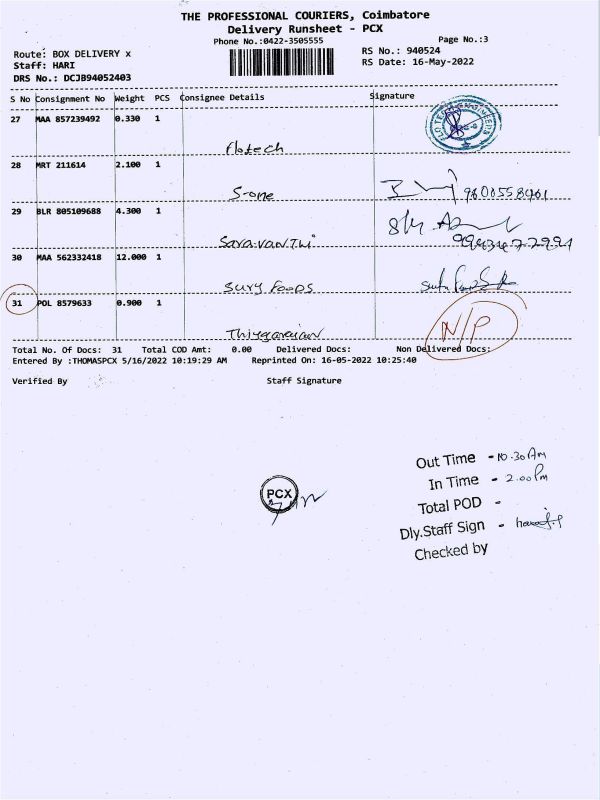 THE PROFESSIONAL COURIERS, Coimbatore
Delivery Runsheet - PCX
Phone No.:0422-3505555 Page No.:3
Route: BOX DELIVERY x RS No.: 940524
Staff: HARI RS Date: 16-May-2022
DRS No.: DCJB94052403
S No Consignment No Weight PCS Consignee Details Signature
27 MAA 857239492 0.330 1
flotech
28 MRT 211614 2.100 1
S-one
29 BLR 805109688 4.300 1
30 MAA 562332418 12.000 1
Sury Foods
31 POL 8579633 0.900 1
N/P
Total No. Of Docs: 31 Total COD Amt: 0.00 Delivered Docs: Non Delivered Docs:
Entered By :THOMASPCX 5/16/2022 10:19:29 AM Reprinted On: 16-05-2022 10:25:40
Verified By Staff Signature
Out Time - 10.30 Am
In Time - 2.00 Pm
PCX
Total POD -
Dly.Staff Sign -
Checked by